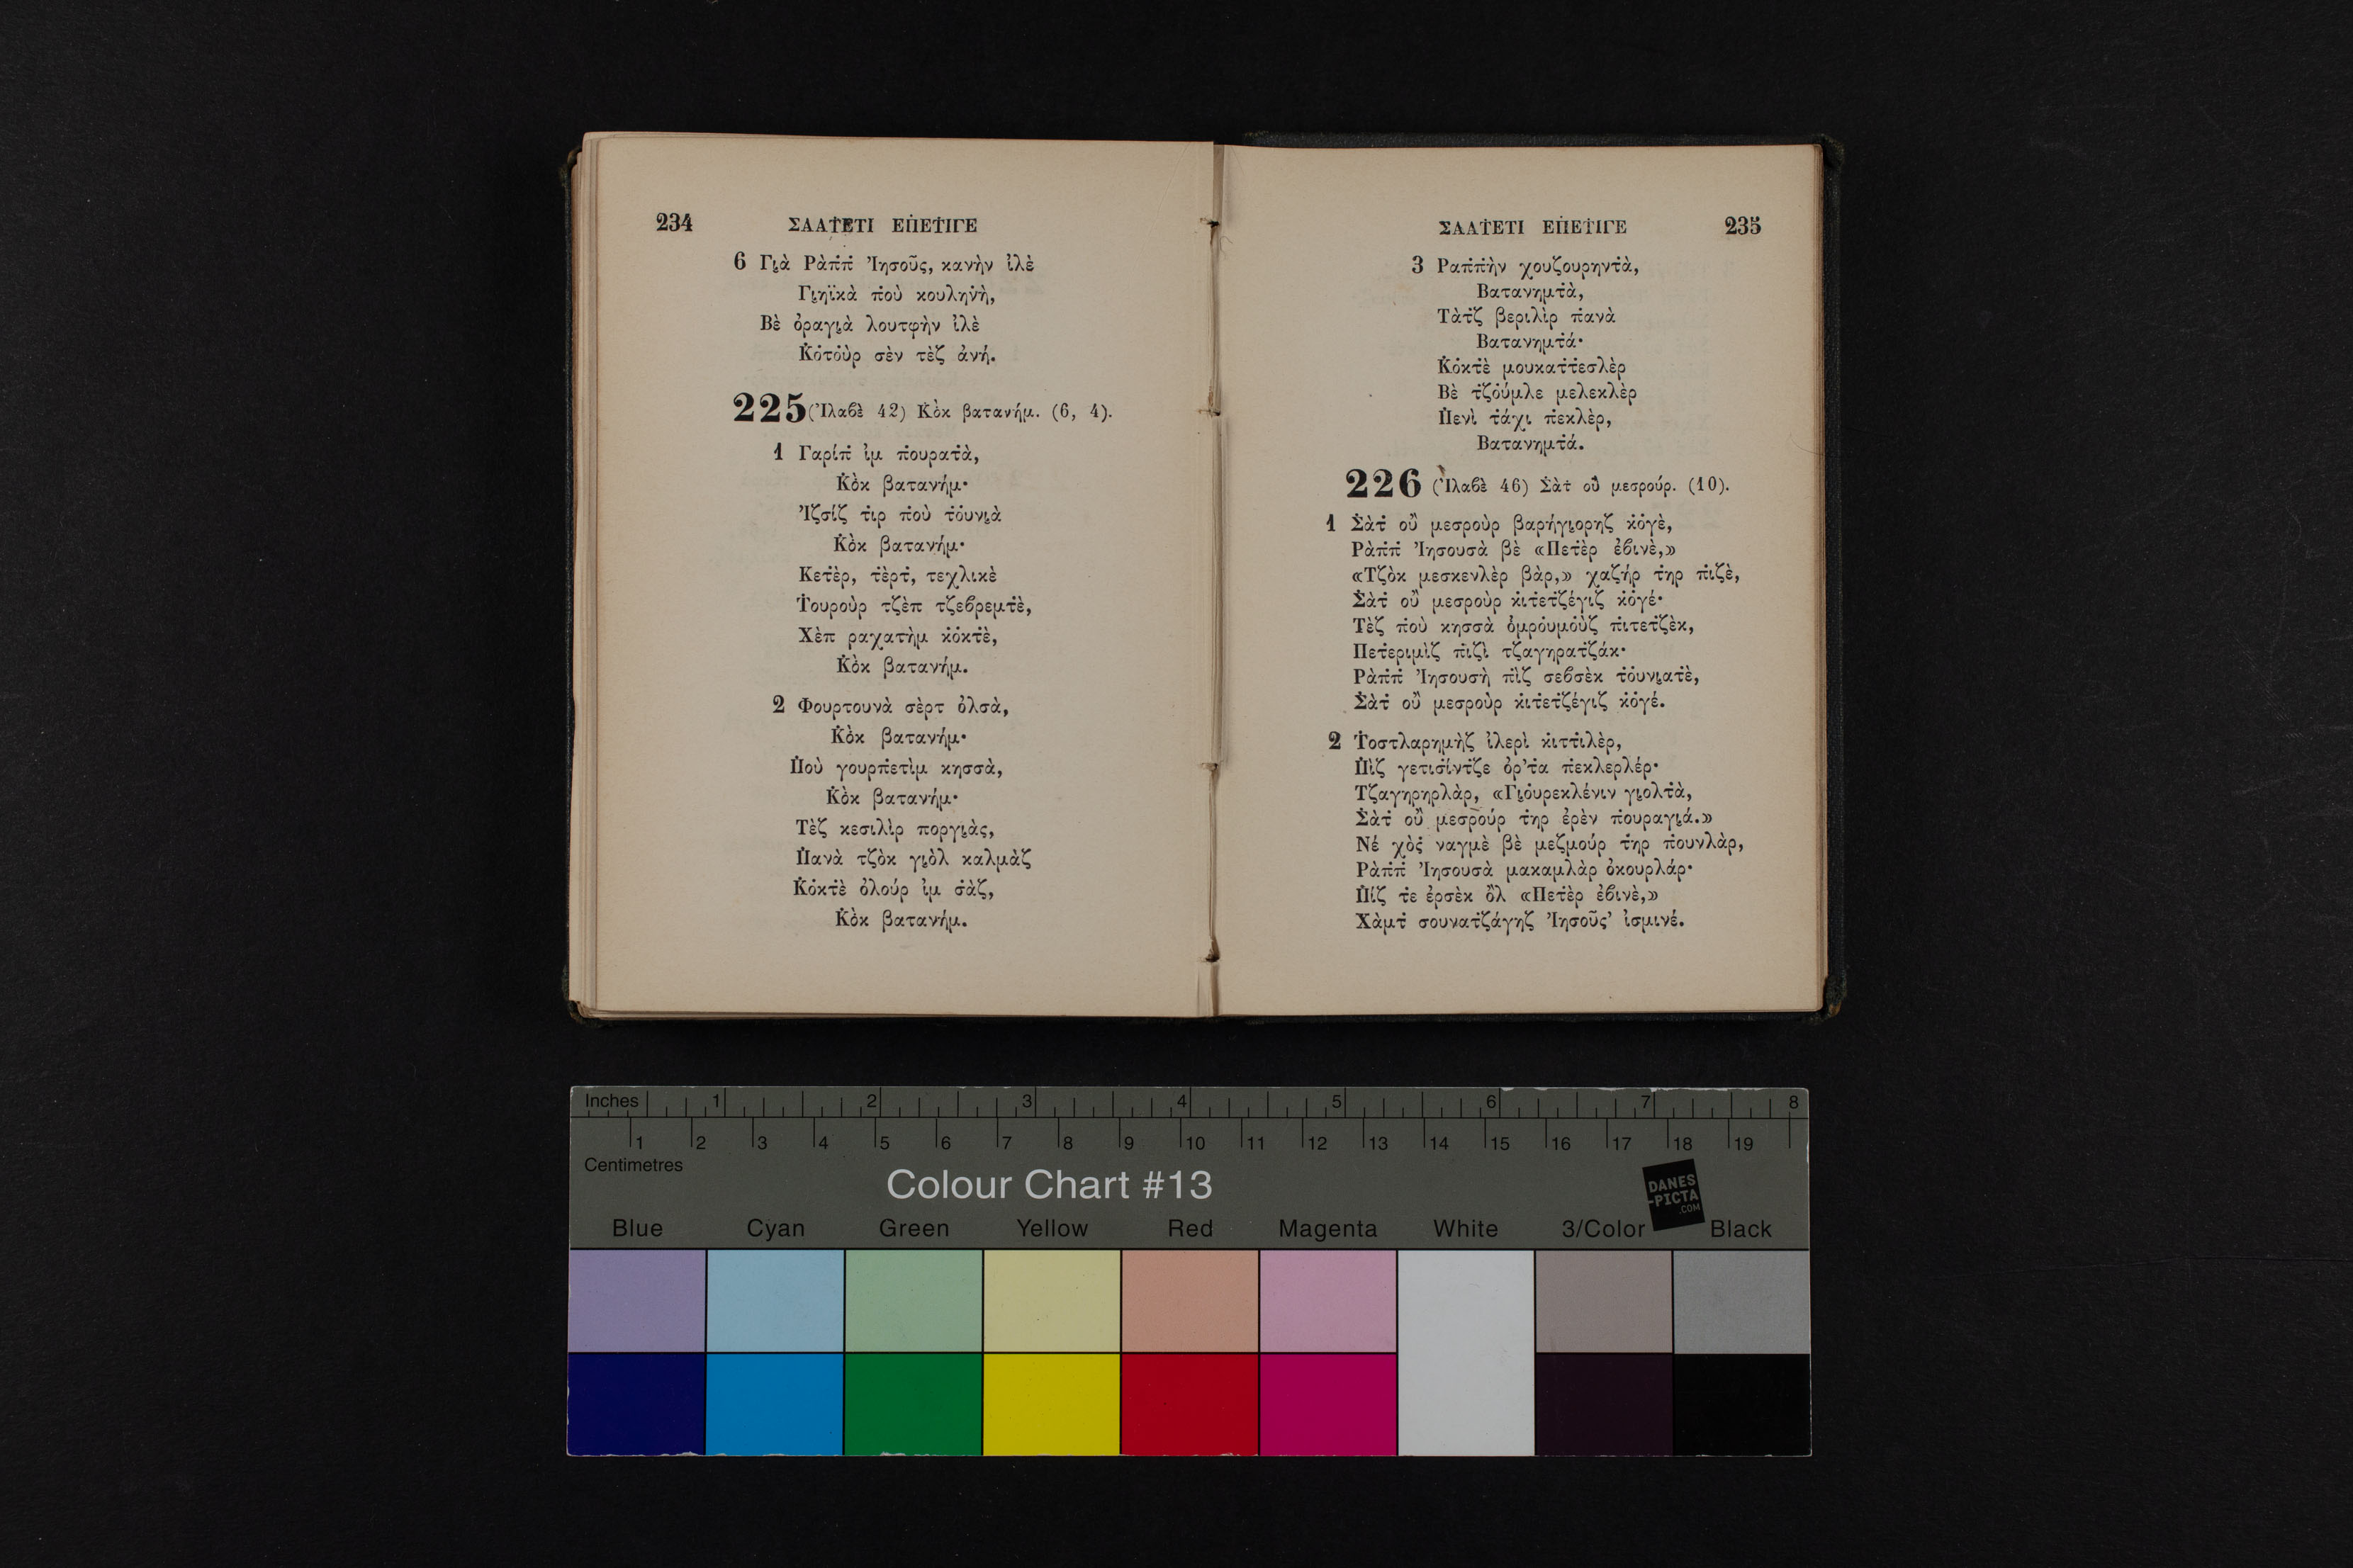 234 ΣΑΑΤ̇ΕΤΙ ΕΠ̇ΕΤ̇ΙΓΕ
6 Γι̮ὰ Ρὰπ̇π̇ Ἰησοῦς, κανὴν ἰλὲ
Γι̮ηϊκὰ π̇οὺ κουληνὴ,
Βὲ ὀραγι̮ὰ λουτφὴν ἰλὲ
Κ̇ὀτοὺρ σὲν τὲζ ἀνή.
225 (Ἰλαϐὲ 42) Κ̇ὸκ βατανήμ. (6, 4).
1 Γαρίπ̇ ἰμ π̇ουρατ̇ὰ,
Κ̇ὸκ βατανήμ·
Ἰζσίζ τ̇ιρ π̇οὺ τ̇ουνι̮ὰ
Κ̇ὸκ βατανήμ·
Κετ̇ὲρ, τ̇ὲρτ̇, τεχλικὲ
Τ̇ουροὺρ τζὲπ τζεϐρεμτ̇ὲ,
Χὲπ ραχατὴμ κ̇ὀκτ̇ὲ,
Κ̇ὸκ βατανήμ.
2 Φουρτουνὰ σὲρτ ὀλσὰ,
Κ̇ὸκ βατανήμ·
Π̇οὺ γουρπ̇ετὶμ κησσὰ,
Κ̇ὸκ βατανήμ·
Τὲζ κεσιλὶρ ποργι̮ὰς,
Π̇ανὰ τζὸκ γι̮ὸλ καλμὰζ
Κ̇ὀκτ̇ὲ ὀλούρ ἰμ σ̇ὰζ,
Κ̇ὸκ βατανήμ.
ΣΑΑΤ̇ΕΤΙ ΕΠ̇ΕΤ̇ΙΓΕ 235
3 Ραπ̇π̇ὴν χουζουρηντ̇ὰ,
Βατανημτ̇ὰ,
Τὰτ̇ζ βεριλὶρ π̇ανὰ
Βατανημτ̇ά·
Κ̇ὀκτ̇ὲ μουκατ̇τ̇εσλὲρ
Βὲ τ̇ζούμλε μελεκλὲρ
Π̇ενὶ τ̇άχι π̇εκλὲρ,
Βατανημτ̇ά.
226 (Ἰλαϐὲ 46) Σ̇ὰτ̇ οὒ μεσρούρ. (10).
1 Σ̇ὰτ̇ οὒ μεσροὺρ βαρήγι̮ορηζ κ̇ὀγὲ,
Ρὰπ̇π̇ Ἰησουσὰ βὲ «Πετ̇ὲρ ἐϐινὲ,»
«Τζὸκ μεσκενλὲρ βὰρ,» χαζήρ τ̇ηρ π̇ιζὲ,
Σ̇ὰτ̇ οὒ μεσροὺρ κ̇ιτ̇ετ̇ζέγιζ κ̇ὀγέ·
Τὲζ π̇οὺ κησσὰ ὀμρουμοὺζ π̇ιτετ̇ζὲκ,
Πετ̇εριμὶζ π̇ιζὶ τζαγηρατ̇ζάκ·
Ρὰπ̇π̇ Ἰησουσὴ π̇ὶζ σεϐσὲκ τ̇ουνι̮ατ̇ὲ,
Σ̇ὰτ̇ οὒ μεσροὺρ κ̇ιτ̇ετ̇ζέγιζ κ̇ὀγέ.
2 Τ̇οστλαρημὴζ ἰλερὶ κ̇ιττ̇ιλὲρ,
Π̇ὶζ γετισ̇ίντ̇ζε ὀρ'τ̇α π̇εκλερλέρ·
Τζαγηρηρλὰρ, «Γι̮ουρεκλένιν γι̮ολτ̇ὰ,
Σ̇ὰτ̇ οὒ μεσρούρ τ̇ηρ ἐρὲν π̇ουραγι̮ά.»
Νέ χὸς̇ ναγμὲ βὲ μεζμούρ τ̇ηρ π̇ουνλὰρ,
Ρὰπ̇π̇ Ἰησουσὰ μακαμλὰρ ὀκουρλάρ·
Π̇ίζ τ̇ε ἐρσὲκ ὂλ «Πετ̇ὲρ ἐϐινὲ,»
Χὰμτ̇ σουνατ̇ζάγηζ Ἰησοῦς' ἰσμινέ.
Inches 1 2 3 4 5 6 7 8
1 2 3 4 5 6 7 8 9 10 11 12 13 14 15 16 17 18 19
Centimetres
Colour Chart #13
DANES
-PICTA
.COM
Blue Cyan Green Yellow Red Magenta White 3/Color Black